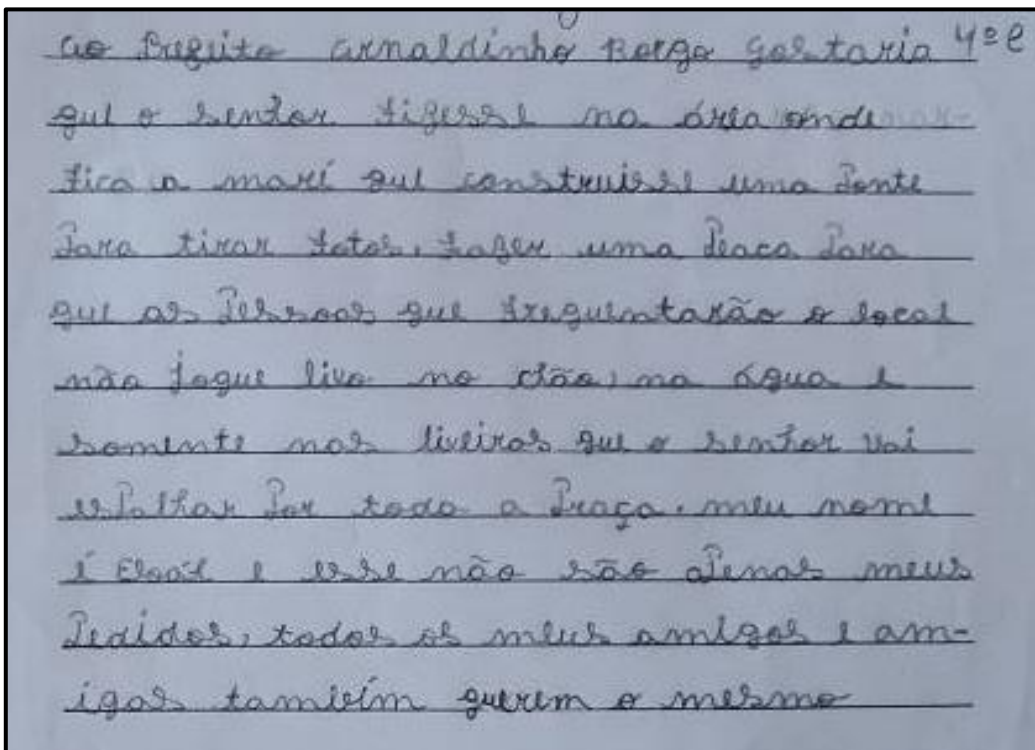 ao Prefeito arnaldinho Borgo gostaria 4º e
que o senhor fizesse na área onde
fica a maré que construisse uma Ponte
Para tirar fotos, fazer uma Placa Para
que as Pessoas que frequentarão o local
não jogue lixo no chão, na água e
somente nas lixeiras que o senhor vai
esPalhar Por toda a Praça. meu nome
é e esse não são aPenas meus
Pedidos, todos os meus amigos e am-
igas também querem o mesmo